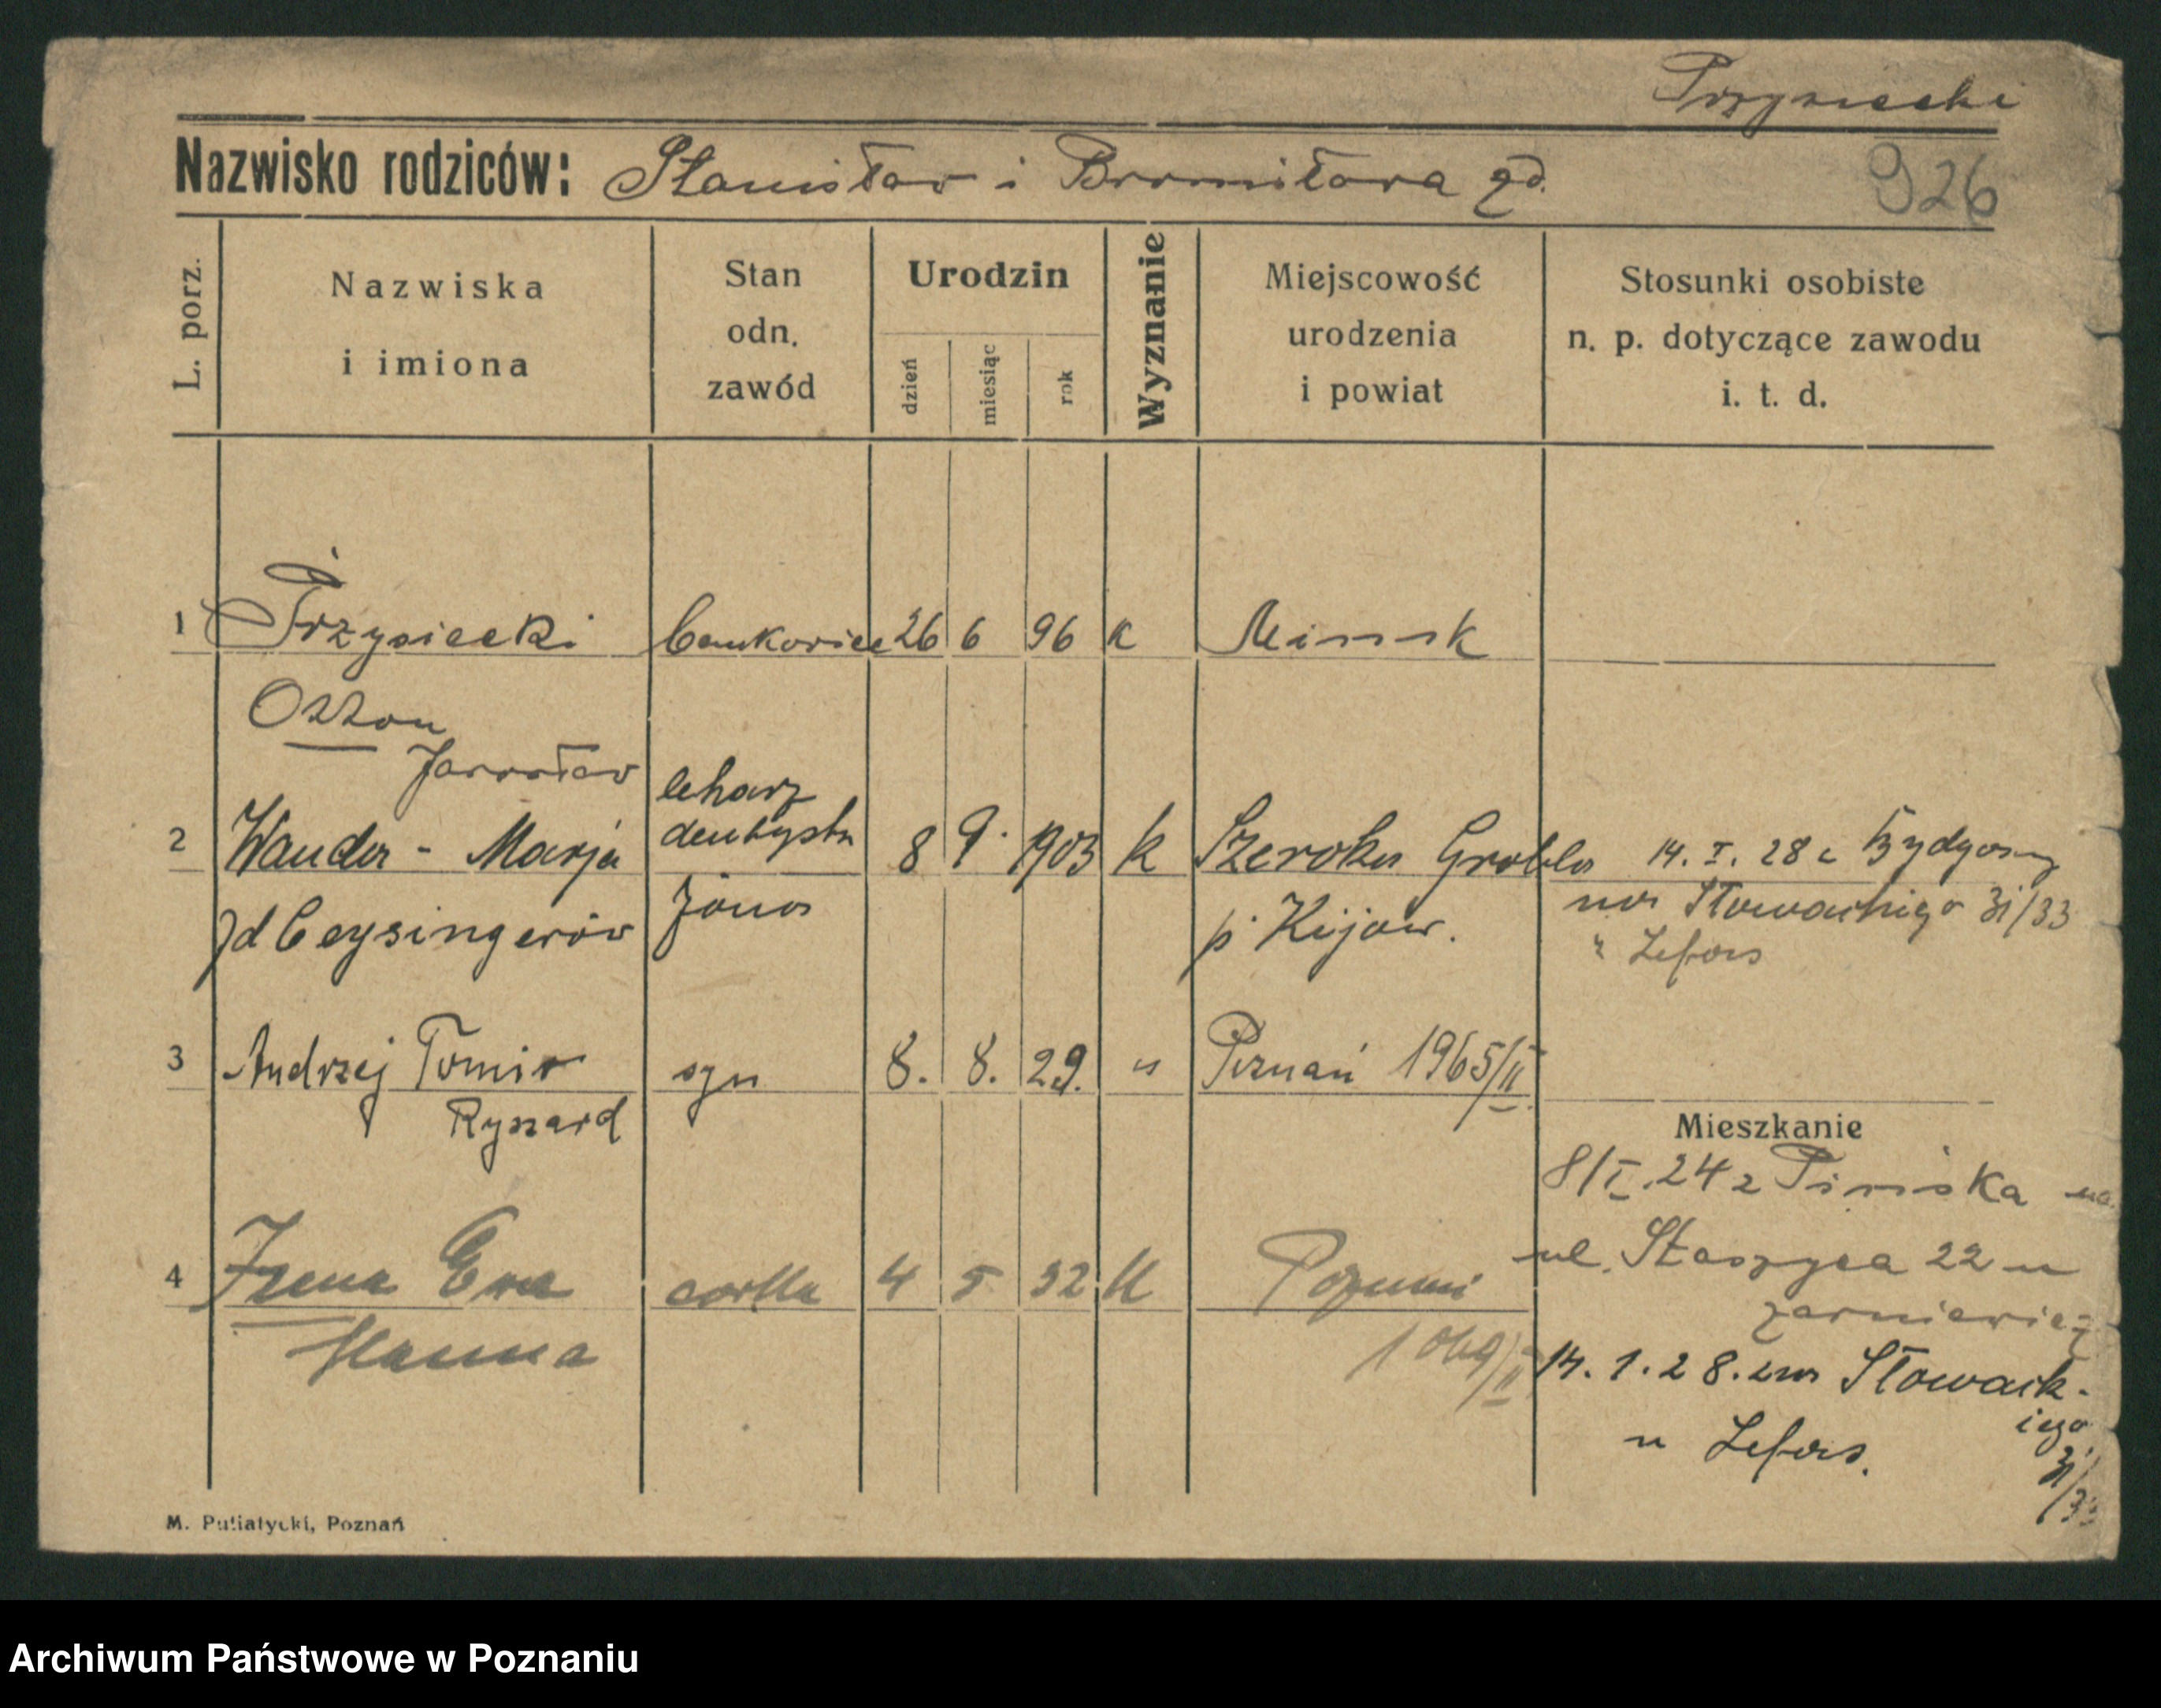 Przysiecki
Nazwisko rodziców: Stanisław i Bromisława zd.
926
L. porz.
Nazwiska
i imiona
Stan
odn.
zawód
Urodzin
dzień
miesiąc
rok
Wyznanie
Miejscowość
urodzenia
i powiat
Stosunki osobiste
n. p. dotyczące zawodu
i. t. d.
1 Przysiecki bankowiec 26 6 96 k Minsk
Otton
Jarosław
lekarz
dentysta
2 Wanda - Marja 8 9. 1903 k Szeroka Grobla 14. I. 28 z Bydgoszy
zd Ceysingerów żona p. Kijow. na Słowackiego 31/33
u Lefors
3 Andrzej Tomir syn 8. 8. 29. " Poznań 1965/II
Ryszard
Mieszkanie
8/I. 24 z Pinska na
4 Irena Ewa corka 4 5 32 k Poznań ul. Staszyca 22 u
Hanna
14. 1. 28. na Słowack-
iego
u Lefors. 31/
/33
M. Putiatycki, Poznań
Archiwum Państwowe w Poznaniu